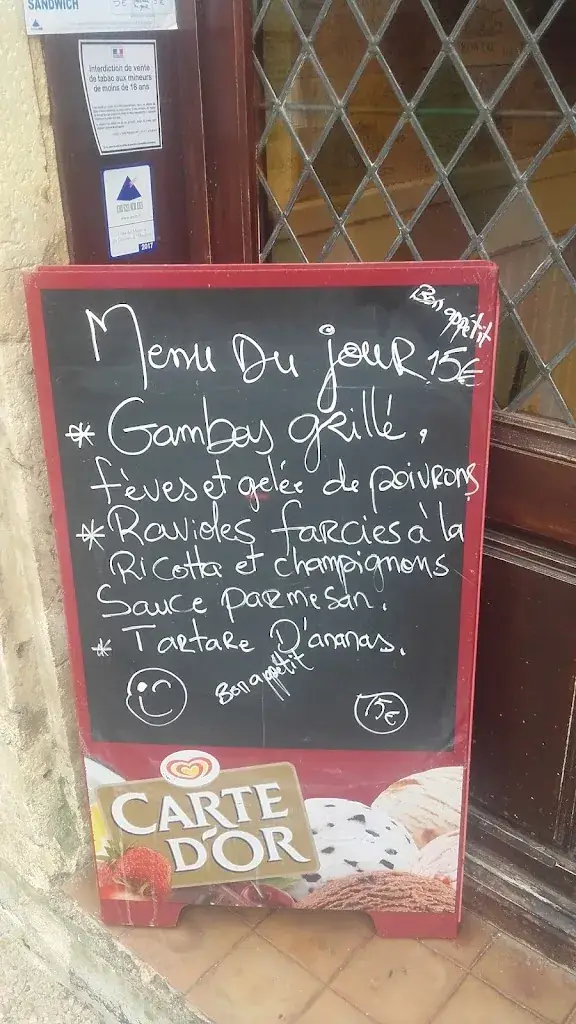 SANDWICH
5€
Interdiction de vente
de tabac aux mineurs
de moins de 18 ans
2017
Bon appétit
Menu Du jour 15€
* Gambas grillé,
fèves et gelée de poivrons
* Ravioles farcies à la
Ricotta et champignons
Sauce parmesan.
* Tartare D'ananas.
Bon appétit
15€
CARTE
D'OR